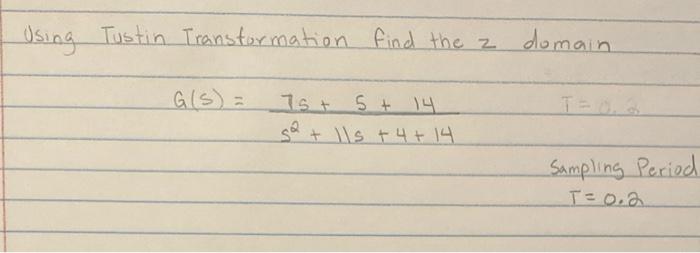 Using Tustin Transformation find the z domain
G(s) = 7s + 5 + 14 T = 0.2
s² + 11s + 4 + 14
Sampling Period
T = 0.2